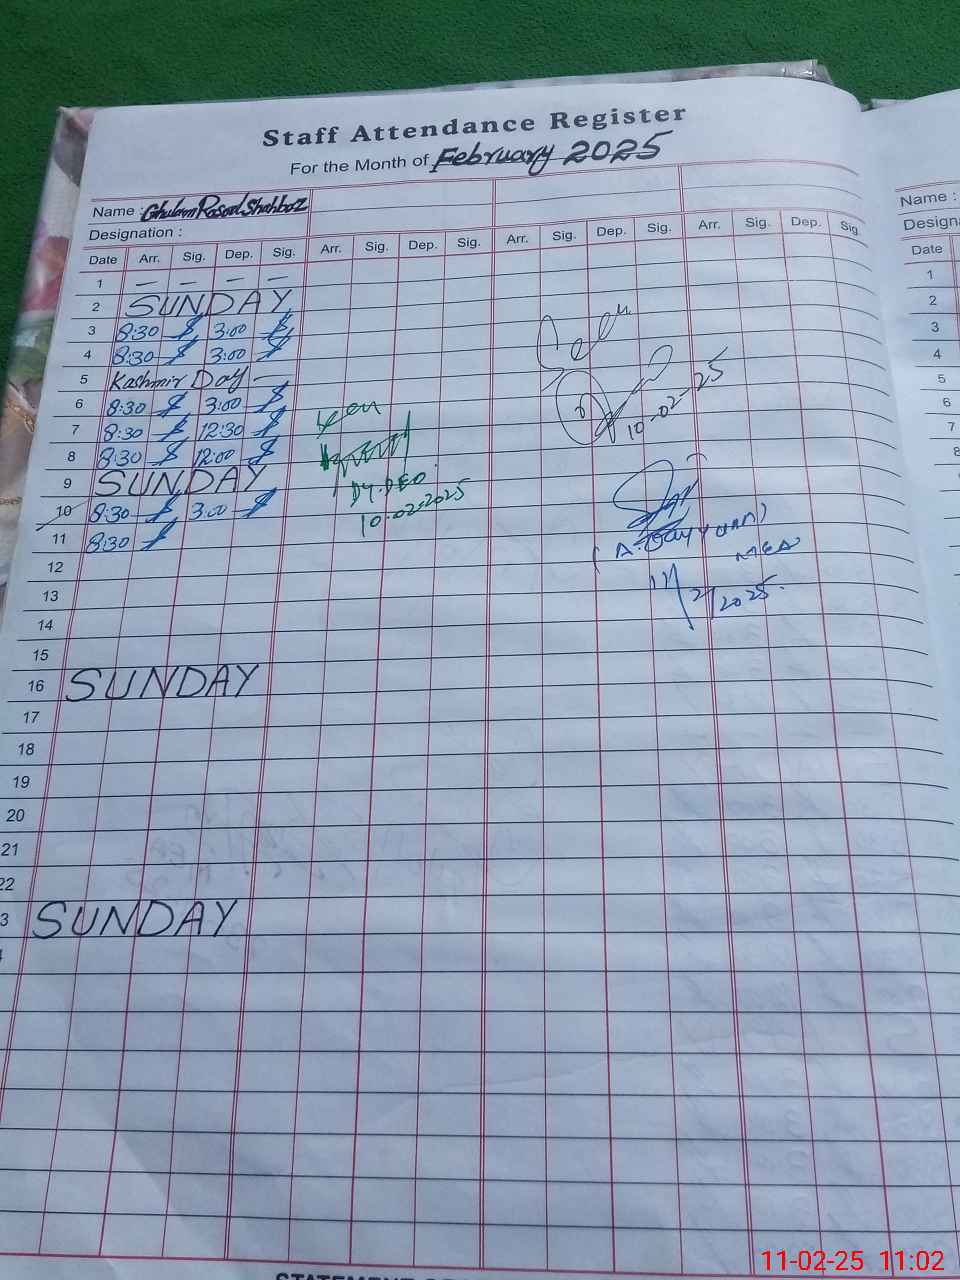 Staff Attendance Register
For the Month of February 2025
Name : Ghulam Rasool Shahbaz
Designation :
Date Arr. Sig. Dep. Sig. Arr. Sig. Dep. Sig. Arr. Sig. Dep. Sig. Arr. Sig. Dep. Sig.
1 — — — —
2 SUNDAY
3 8:30 3:00
4 8:30 3:00
5 Kashmir Day —
6 8:30 3:00
7 8:30 12:30
8 8:30 12:00
9 SUNDAY
10 8:30 3:00
11 8:30
12
13
14
15
16 SUNDAY
17
18
19
20
21
22
3 SUNDAY
Seen
DY.DEO
10-02-2025
Seen
10-02-25
MEA
11/2/2025
Name :
Date
1
2
3
4
5
6
7
8
11-02-25 11:02